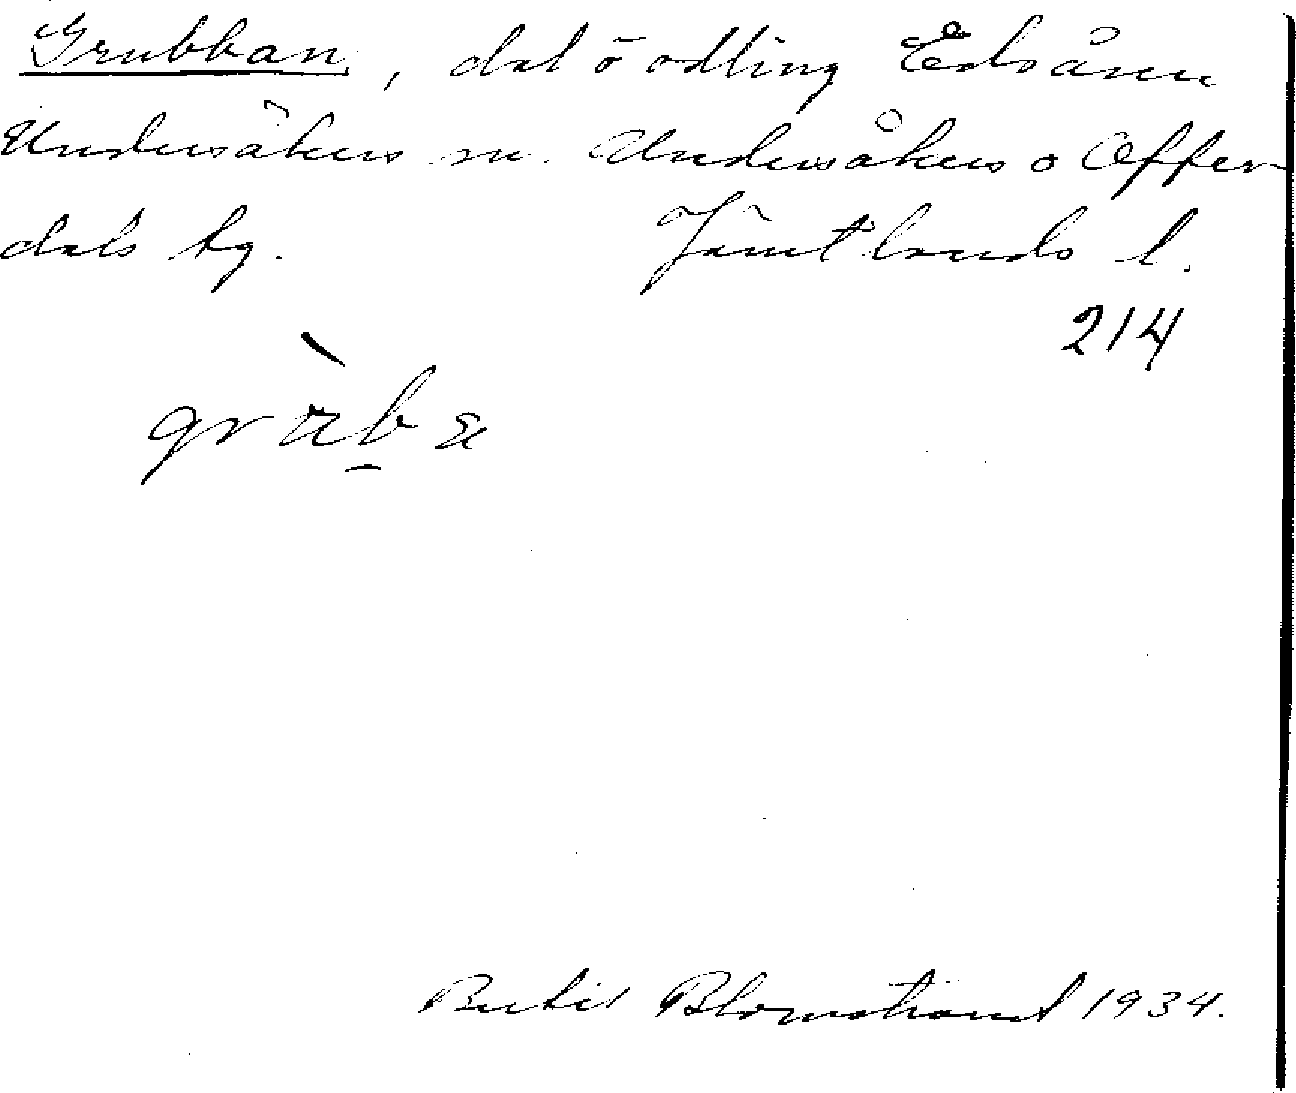 Grubban, dal o odling Edsåsen
Undersåkers sn. Undersåkers o Offer-
dals tg. Jämtlands l.
214
Bertil Blomstrand 1934.